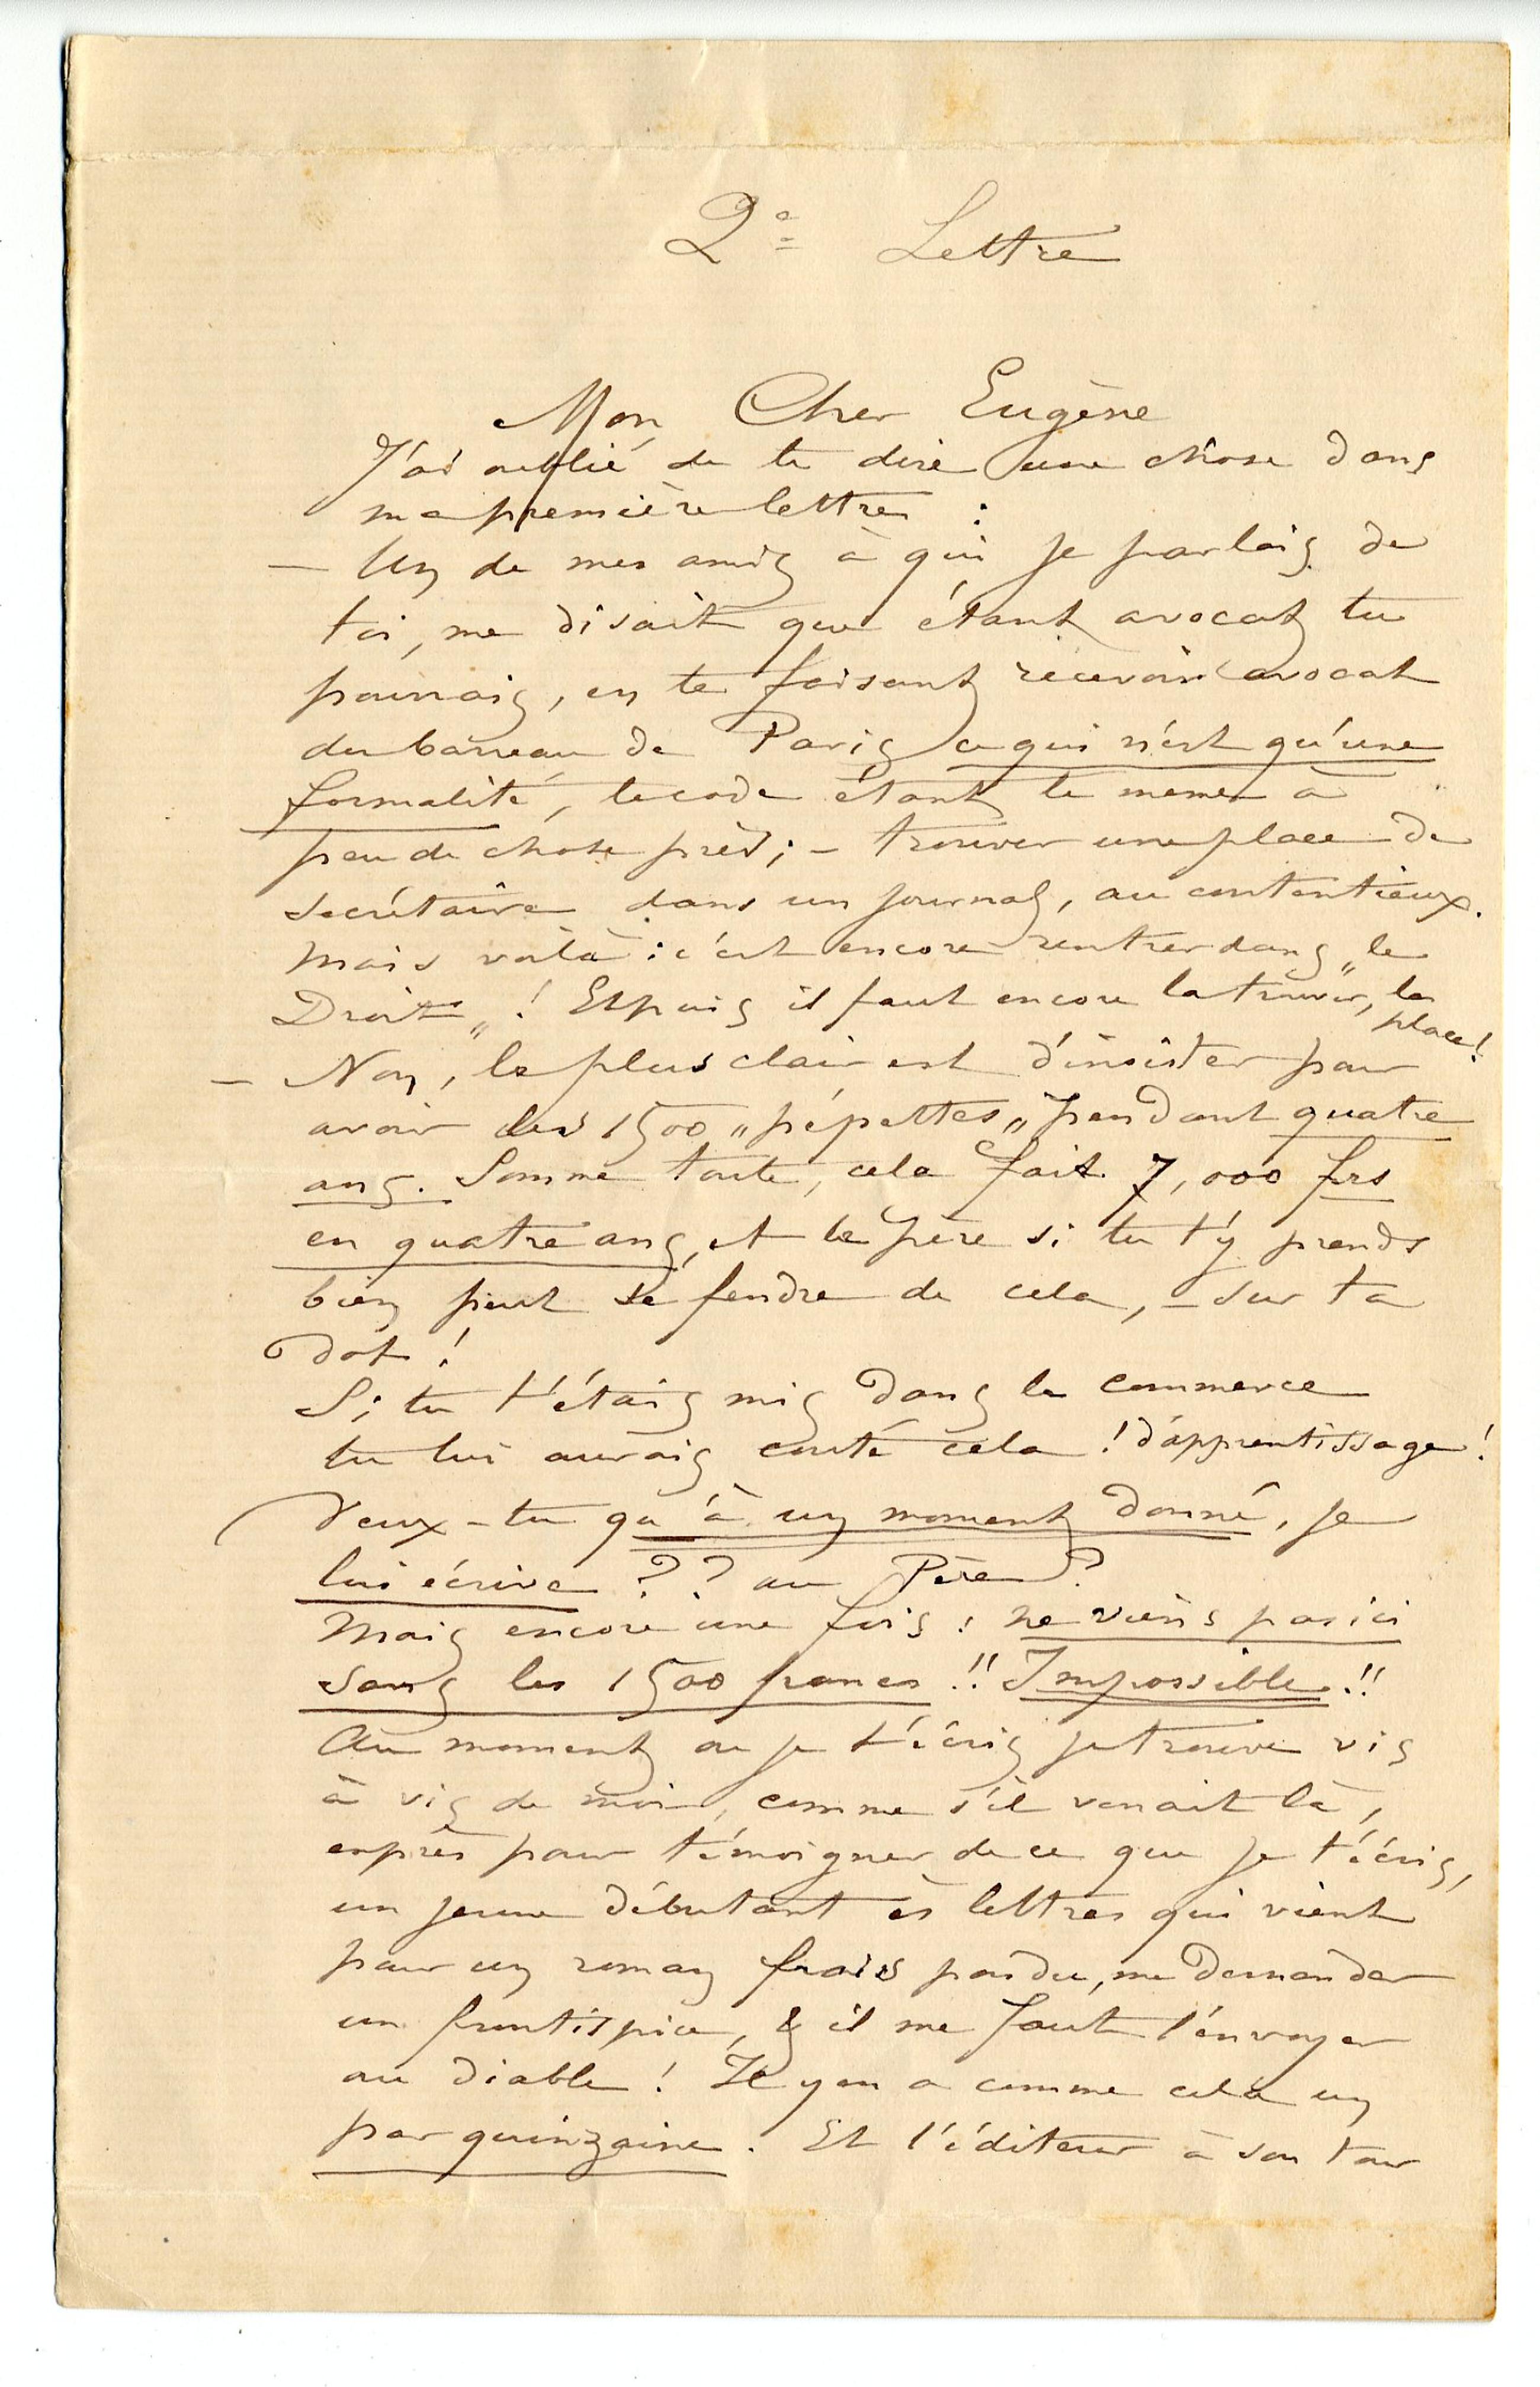 2e Lettre
Mon Cher Eugène
J'ai oublié de te dire une chose dans
ma première lettre :
— Un de mes amis à qui je parlais de
toi, me disait que étant avocat tu
pourrais, en te faisant recevoir avocat
du barreau de Paris ce qui n'est qu'une
formalité, le code étant le même à
peu de chose près ; – trouver une place de
secrétaire dans un journal, au contentieux.
Mais voilà : c'est encore rentrer dans „le
Droit„ ! Et puis il faut encore la trouver, la
place !
— Non, le plus clair est d'insister pour
avoir les 1500 „pépettes„ pendant quatre
ans. Somme toute, cela fait 7,000 frs
en quatre ans, et le père si tu t'y prends
bien peut se fendre de cela, – sur ta
dot !
Si tu t'étais mis dans le commerce
tu lui aurais couté cela ! d'apprentissage !
Veux-tu qu'à un moment donné, je
lui écrive ? ? au Père ?
Mais encore une fois : ne viens pas ici
sans les 1500 francs !! Impossible !!
Au moment ou je t'écris je trouve vis
à vis de moi, comme s'il venait là,
exprès pour témoigner de ce que je t'écris,
un jeune débutant ès lettres qui vient
pour un roman frais pondu, me demander
un frontispice, & il me faut l'envoyer
au diable ! Il y en a comme cela un
par quinzaine. Et l'éditeur à son tour